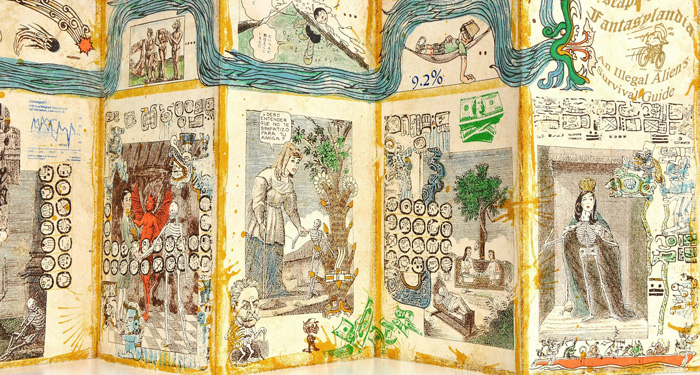 ¿DEBO
ENTENDER
QUE NO TE
SIMPATIZO
PARA
AMIGA?
9.2%
scap
Fantasylandi
An Illegal Alien's
Survival Guide